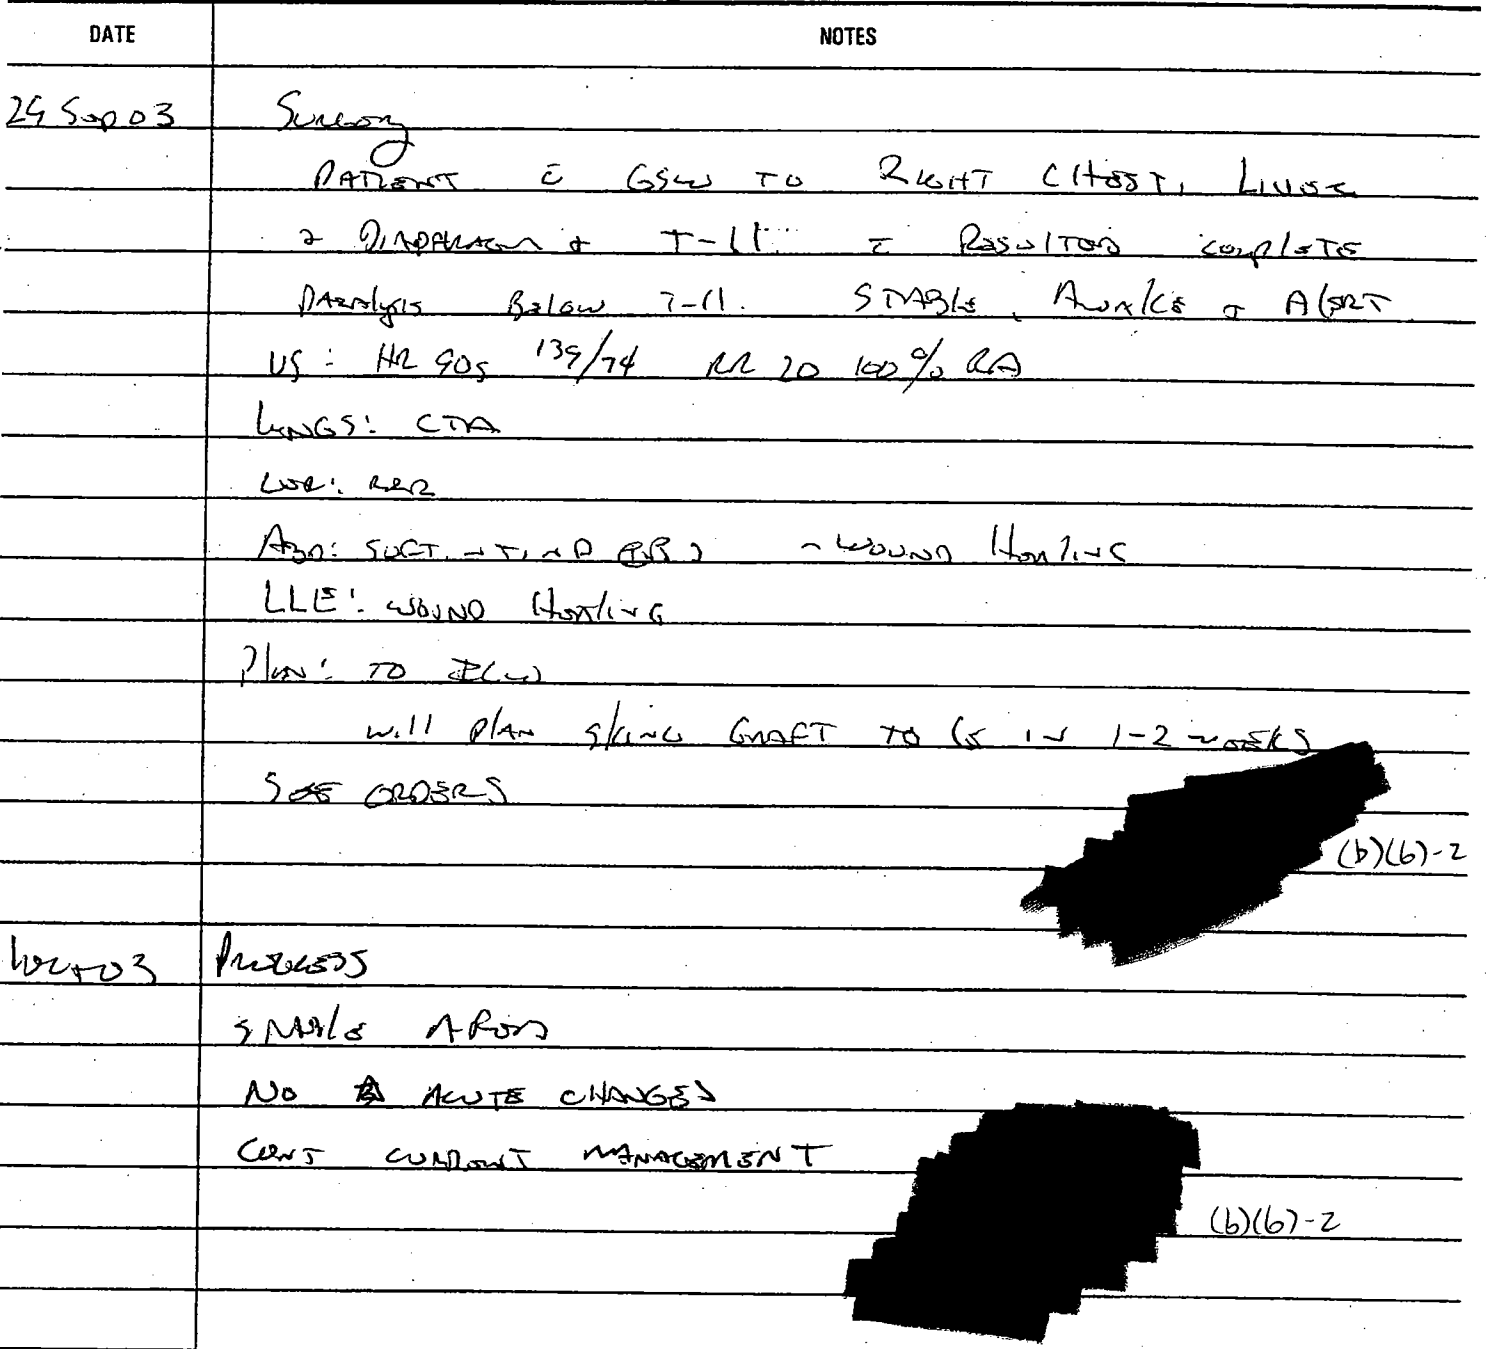 DATE NOTES
Sep 03 Surgery
PATIENT c̄ GSW TO RIGHT CHEST, LIVER
DIAPHRAGM + T-11 c̄ RESULTED complete
PARALYSIS Below T-11. STABLE, AWAKE + ALERT
VS: HR 90s 139/74 RR 20 100% RA
LUNGS: CTA
COR: RRR
ABD: SOFT, NT, ND WOUND HEALING
LLE: WOUND HEALING
Plan: TO ICW
will PLAN GRAFT TO IN 1-2 WEEKS
SEE ORDERS
(b)(6)-2
Oct 03 PROGRESS
STABLE AFEB
NO ACUTE CHANGES
CONT CURRENT MANAGEMENT
(b)(6)-2